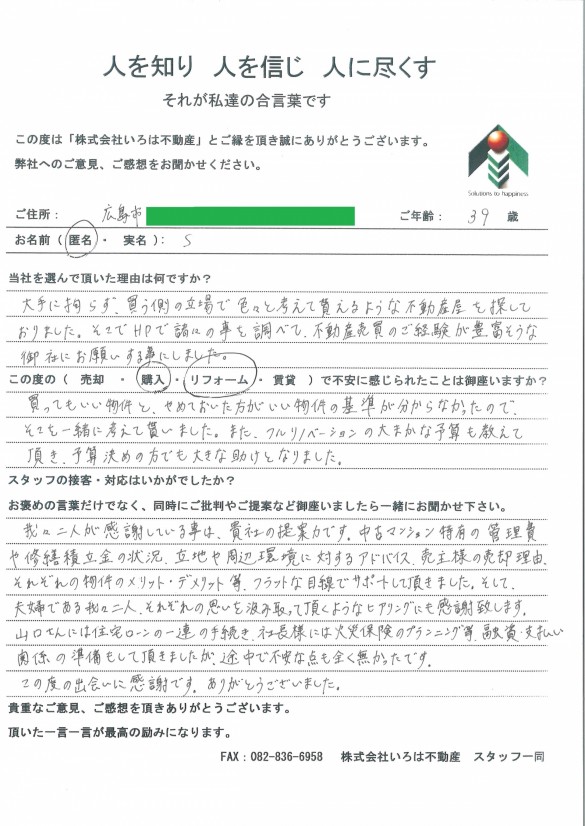 人を知り 人を信じ 人に尽くす
それが私達の合言葉です
この度は「株式会社いろは不動産」とご縁を頂き誠にありがとうございます。
弊社へのご意見、ご感想をお聞かせください。
Solutions to happiness
ご住所： 広島市 ご年齢： 39 歳
お名前（ 匿名 ・ 実名 ）： S
当社を選んで頂いた理由は何ですか？
大手に拘らず、買う側の立場で色々と考えて貰えるような不動産屋を探して
おりました。そこでHPで諸々の事を調べて、不動産売買のご経験が豊富そうな
御社にお願いする事にしました。
この度の（ 売却 ・ 購入 ・ リフォーム ・ 賃貸 ）で不安に感じられたことは御座いますか？
買ってもいい物件と、やめておいた方がいい物件の基準が分からなかったので、
そこを一緒に考えて貰いました。また、フルリノベーションの大まかな予算も教えて
頂き、予算決めの方でも大きな助けとなりました。
スタッフの接客・対応はいかがでしたか？
お褒めの言葉だけでなく、同時にご批判やご提案など御座いましたら一緒にお聞かせ下さい。
我々二人が感謝している事は、貴社の提案力です。中古マンション特有の管理費
や修繕積立金の状況、立地や周辺環境に対するアドバイス、売主様の売却理由、
それぞれの物件のメリット・デメリット等、フラットな目線でサポートして頂きました。そして、
夫婦である我々二人、それぞれの思いを汲み取って頂くようなヒアリングにも感謝致します。
山口さんには住宅ローンの一連の手続き、社長様には火災保険のプランニング等、融資・支払い
関係の準備もして頂きましたが、途中で不安な点も全く無かったです。
この度の出会いに感謝です。ありがとうございました。
貴重なご意見、ご感想を頂きありがとうございます。
頂いた一言一言が最高の励みになります。
FAX：082-836-6958 株式会社いろは不動産 スタッフ一同